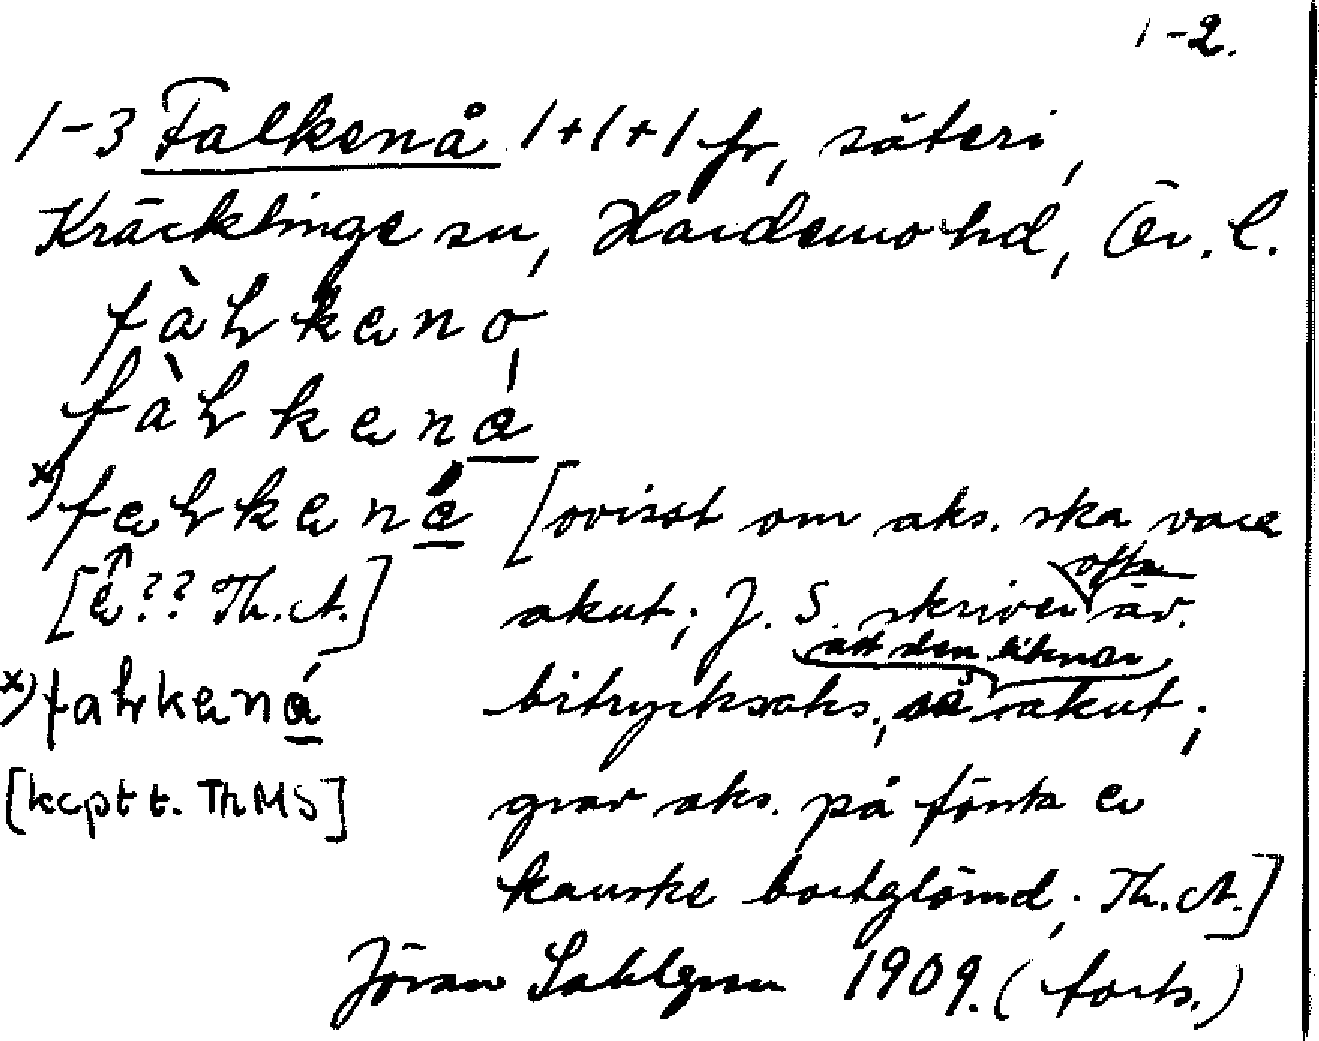 1-2.
1-3 Falkenå 1+1+1 fr, säteri,
Kräcklinge sn, Hardemo hd, Ör. l.
fàlkenå
[ovisst om aks. ska vara
[à?? Th.A.] akut; J. S. skriver ofta äv.
bitrycksaks., så att den liknar akut;
[kcptt. ThMS] grav aks. på första a
kanske bortglömd; Th.A.]
Jöran Sahlgren 1909. (forts.)